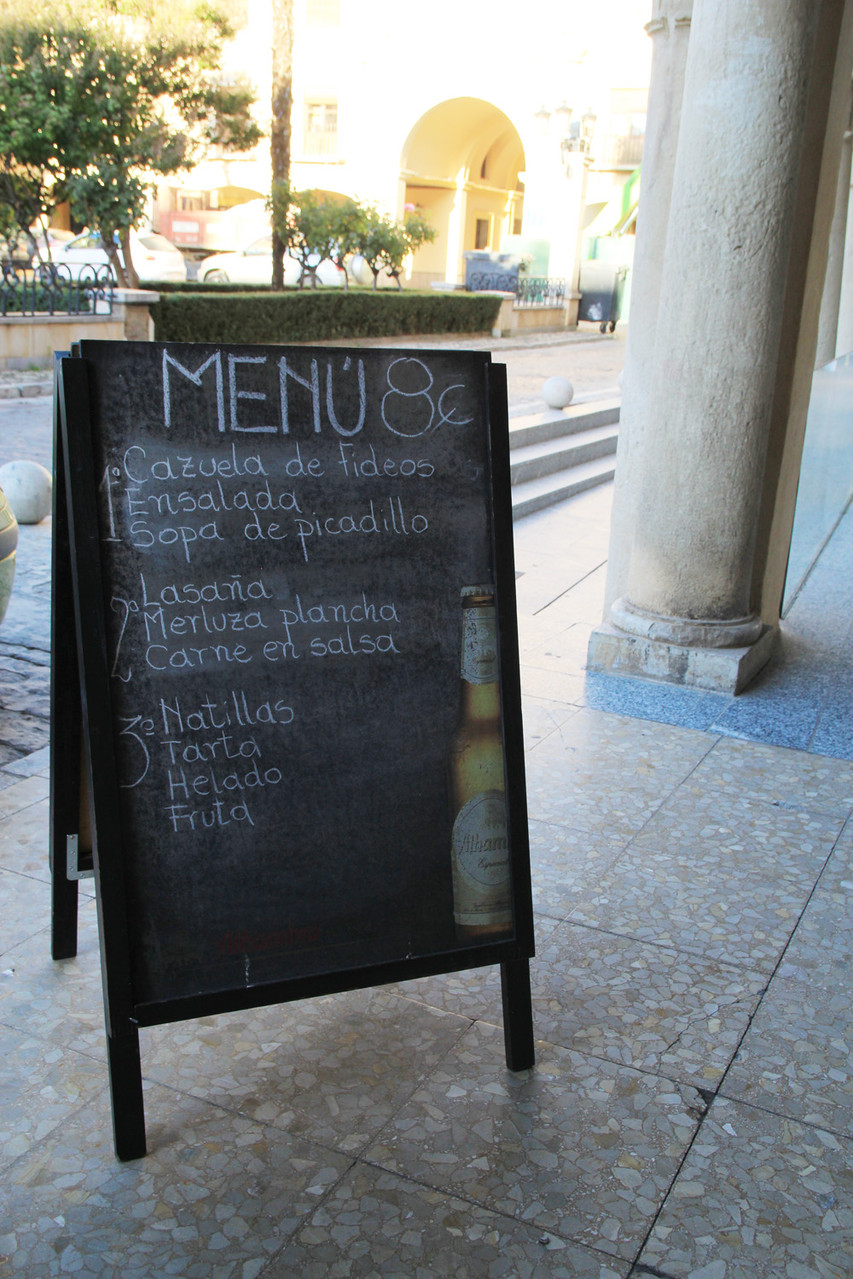 MENÚ 8€
1º Cazuela de fideos
Ensalada
Sopa de picadillo
2º Lasaña
Merluza plancha
Carne en salsa
3º Natillas
Tarta
Helado
Fruta